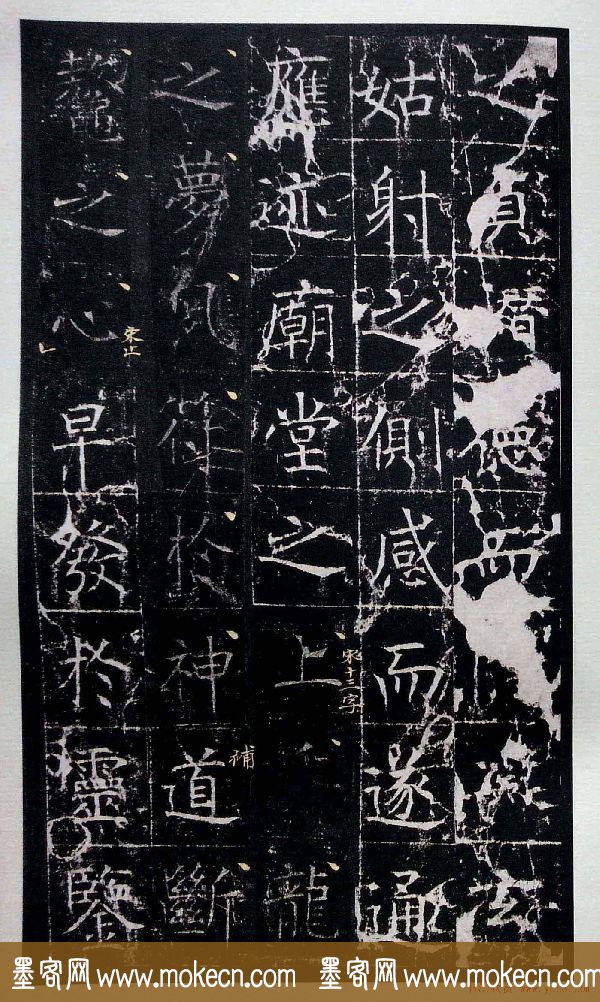 之真潛德
姑射之側感而遂通
應迹廟堂之上龍
之夢風符於神道斷
鼇之心早發於靈鑒
宋十一字
補
宋止
墨客网 www.mokecn.com 墨客网 www.mokecn.com